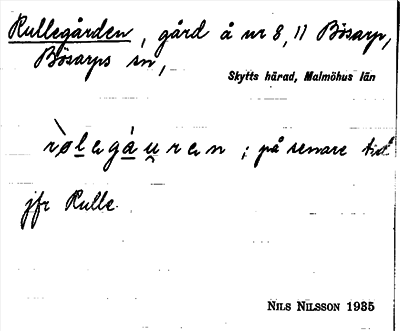 Rullegården, gård å nr 8, 11 Bösarp,
Bösarps sn,
Skytts härad, Malmöhus län
rølegáu̯ren; på senare tid
jfr Rulle
NILS NILSSON 1935